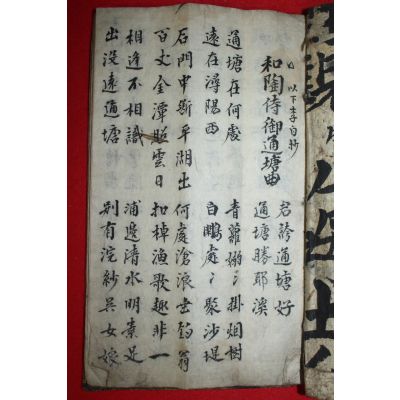 以下李白抄
和陶侍御通塘曲
君誇通塘好
通塘勝耶溪
通塘在何處 青蘿嫋〻掛烟樹
遠在潯陽西 白鷴處〻聚沙堤
石門中断平湖出 何處滄浪垂釣翁
百丈金潭照雲日 扣棹漁歌趣非一
相逢不相識 浦邊清水明素足
出沒遠通塘 別有浣紗吳女娘